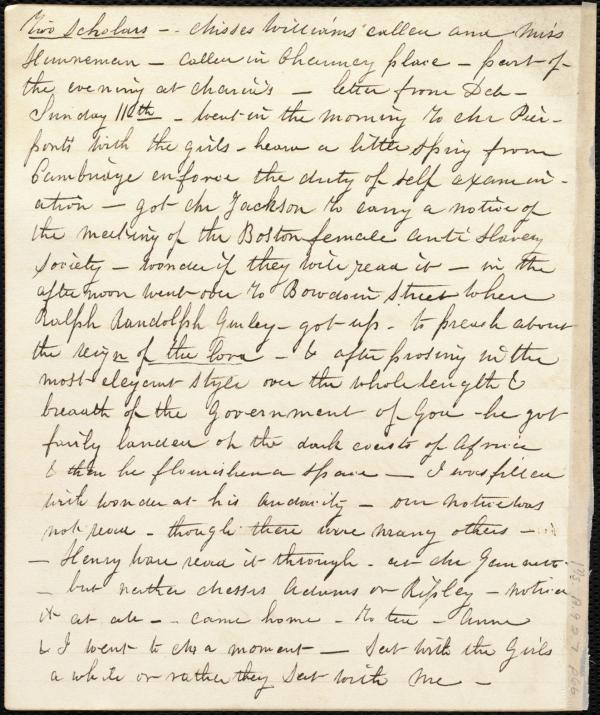 Two Scholars - - Misses Williams called and Miss
Hunneman - called in Chauncy place - part of
the evening at Maria's - letter from Deb -
Sunday 11th - Went in the morning to Mr Pier-
ponts with the girls - heard a little sprig from
Cambridge enforce the duty of self examin-
ation - got Mr Jackson to carry a notice of
the meeting of the Boston female anti Slavery
Society - wonder if they will read it - in the
afternoon went over to Bowdoin Street where
Ralph Randolph Gurley - got up - to preach about
the reign of the Lord - & after prosing in the
most elegant style over the whole length &
breadth of the Government of God - he got
fairly landed on the dark coasts of Africa
& then he flourished a space - I was filled
with wonder at his audacity - our notice was
not read - though there were many others -
- Henry Ware read it through - at Mr Gannetts
- but neither Messrs Adams or Ripley - notice
it at all - - came home - to tea - Anne
& I went to Ms a moment - Sat with the Girls
a while or rather they Sat with me -